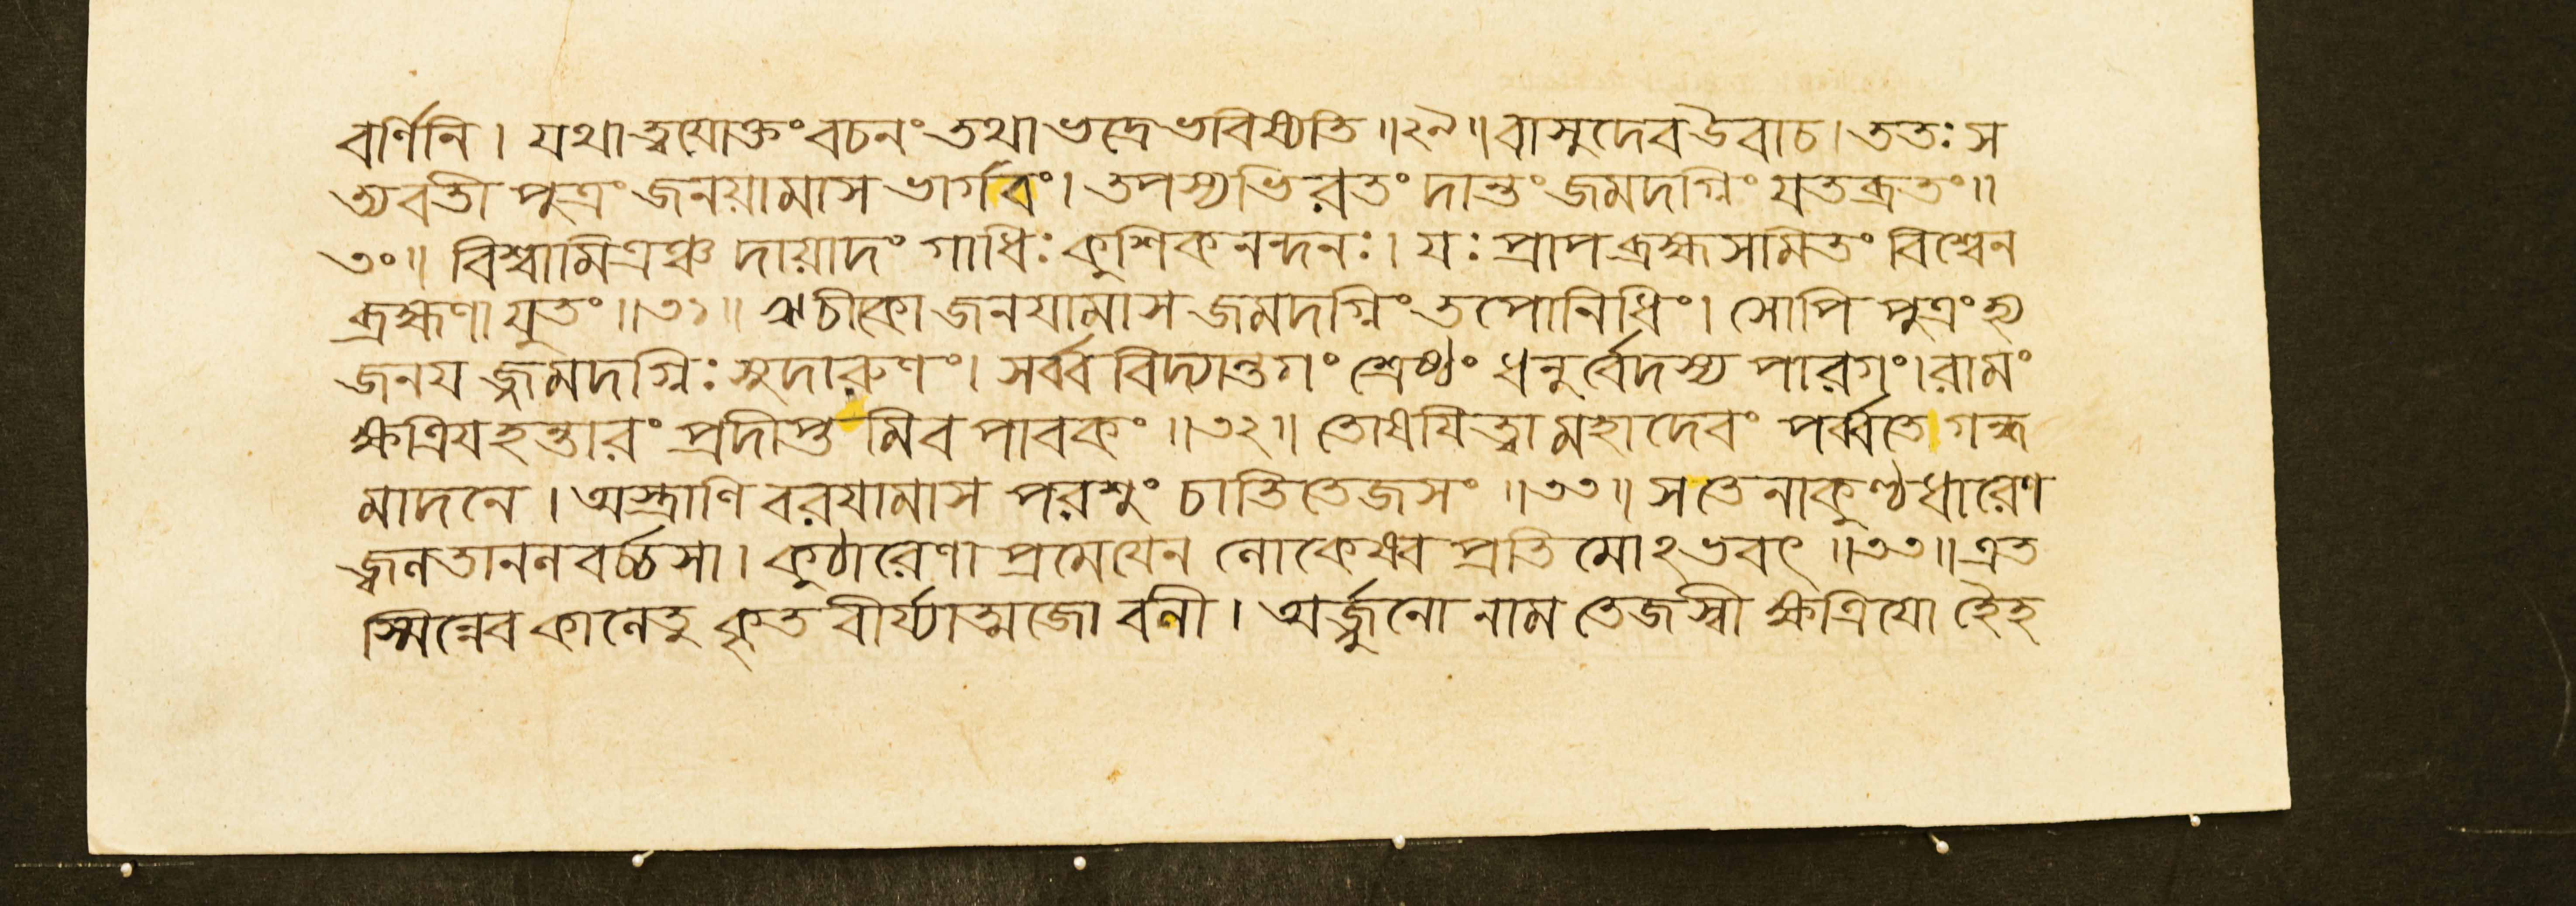 বর্ণিনি। যথা ত্বযোক্তং বচনং তথা ভদ্রে ভবিষ্যতি॥২৯॥ বাসুদেব উবাচ। ততঃ স
ত্যবতী পুত্রং জনয়ামাস ভার্গবং। তপস্যভিরতং দান্তং জমদগ্নিং যতব্রতং॥
৩০॥ বিশ্বামিত্রঞ্চ দায়াদং গাধিঃ কুশিকনন্দনঃ। যঃ প্রাপ ব্রহ্মসমিতং বিশ্বেন
ব্রহ্মণা যুতং॥৩১॥ ঋচীকো জনযামাস জমদগ্নিং তপোনিধিং। সোপি পুত্রং হ্য
জনয জ্জমদগ্নিঃ সুদারুণং। সর্ব্ববিদ্যান্তগং শ্রেষ্ঠং ধনুর্ব্বেদস্য পারগং। রামং
ক্ষত্রিযহন্তারং প্রদীপ্তমিব পাবকং॥৩২॥ তোষযিত্বা মহাদেবং পর্ব্বতে গন্ধ
মাদনে। অস্ত্রাণি বরযামাস পরশুং চাতিতেজসং॥৩৩॥ স তেনাকুণ্ঠধারেণ
জ্বলতানলবর্চ্চসা। কুঠারেণাপ্রমেযেন লোকেষ্বপ্রতিমোঽভবৎ॥৩৩॥ এত
স্মিন্নেব কালেতু কৃতবীর্য্যাত্মজো বলী। অর্জ্জুনো নাম তেজস্বী ক্ষত্রিযো হৈহ